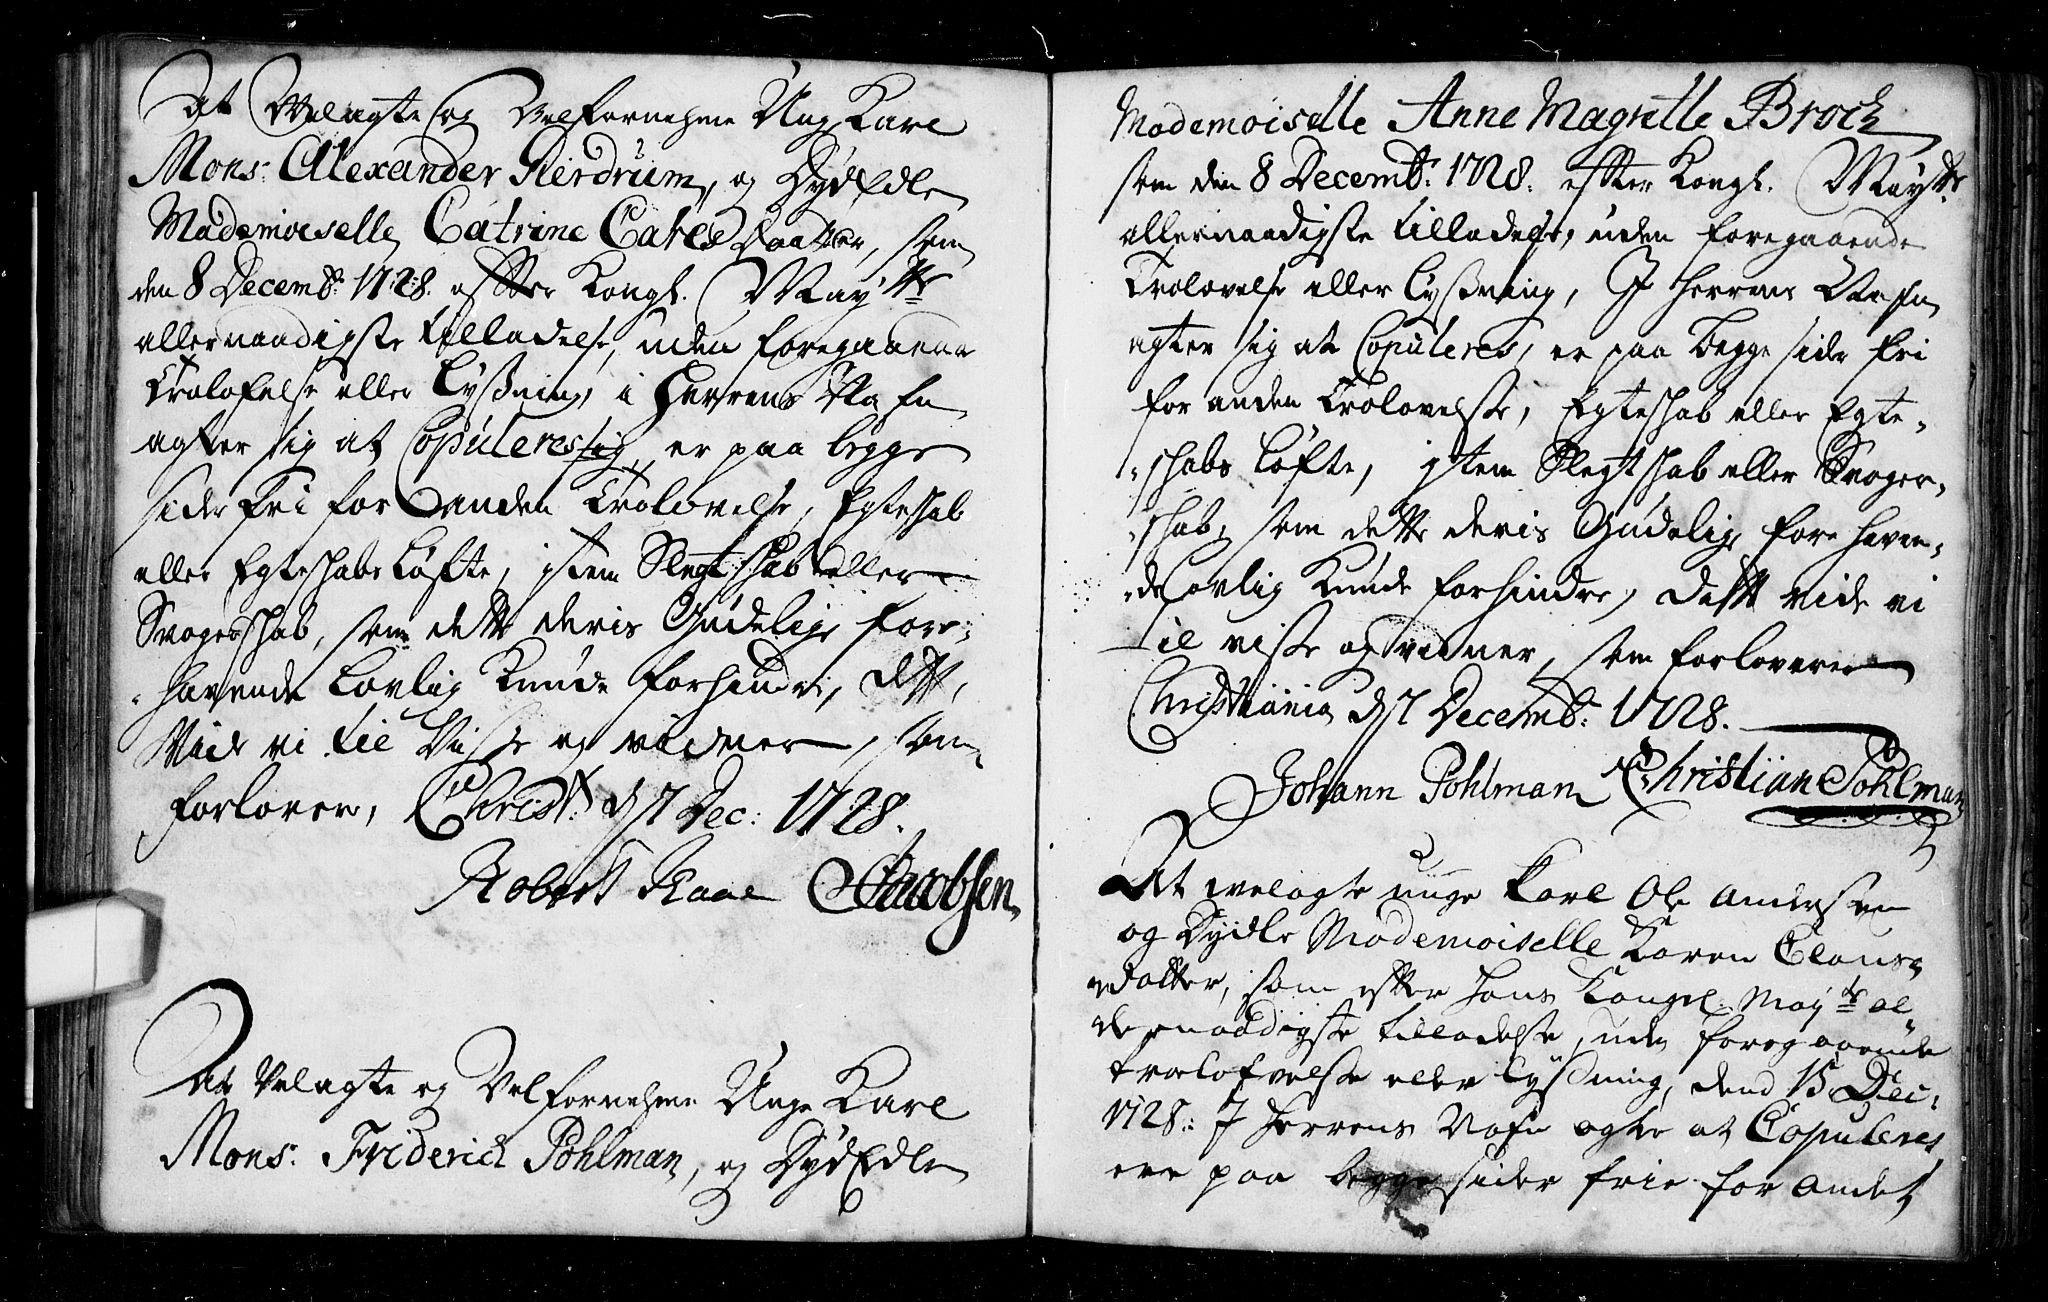 At Velagte og Velfornehme Ung Karl
Mons: Alexander Pierdrum, og Dydædle
Mademoiselle Catrine Cares daatter, som
den 8 Decembr: 1728. efter Kongl. Mayts
allernaadigste tilladelse, uden foregaaende
Trolofelse eller Lysßning, i Herrens Nafn
agter sig at Copuleres sig, er paa begge
sider fri for anden Trolovelse, Egteskab
eller Egteskabs Løfte, jtem Slegtskab eller
Svogerskab, som dette deris Gudelige fore-
havende Lovlig Kunde forhindre, dette,
Vide vi til Visse og vidner, som
forlover, Christ: d 7 Dec: 1728.
Robert Jacobsen
At Velagte og Velfornehme Unge Karl
Mons: Friderich Pohlman, og Dydædle
Mademoiselle Anne Magrette Brock
som den 8 Decembr: 1728. efter Kongl. Mayts
allernaadigste tilladelse, uden foregaaende
Trolovelse eller Lysßning, J Herrens Nafn
agter sig at Copuleres, er paa begge side fri
for anden Trolovelse, Egteskab eller Egte-
-skabs Løfte, jtem Slegtskab eller Svoger-
-skab, som dette deris Gudelige fore haven-
-de Lovlig Kunde forhindre, dette vide vi
til visse og vidner, som forlovere
Christiania d 7 Decembr: 1728.
Johann Pohlman Christian Pohlman
At velagte unge Karl Ole Andersen
og Dydle Mademoiselle Karen Claus-
datter, som efter hans Kongel. Mayts al-
dernaadigste tilladelse, uden foregaaende
trolofvelse eller lysning, dend 15 Dec:
1728: J Herrens Nafn agte at Copuleres
ere paa begge sider frie for andet